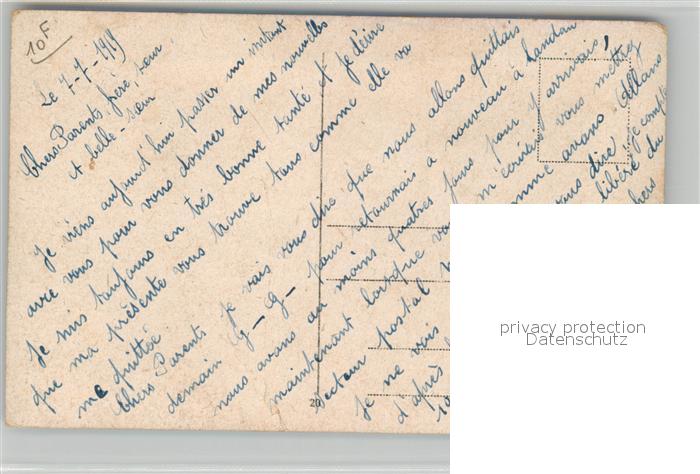 10F
Le 7-7-1919
Chers Parents, frère, sœur,
et belle-sœur
Je viens aujourd'hui passer un instant
avec vous pour vous donner de mes nouvelles
Je suis toujours en très bonne santé et je désire
que ma présente vous trouve tous comme elle va
me quittée
Chers Parents je vais vous dire que nous allons quittais
demain G-G- pour retournais a nouveau à Landau
nous avons au moins quatres jours pour y arrivais,
maintenant lorsque m'écrirais vous mettrez
secteur postal comme avans. Allons
Je ne vais vous dire je compte
d'après libéré du
10
20
privacy protection
Datenschutz